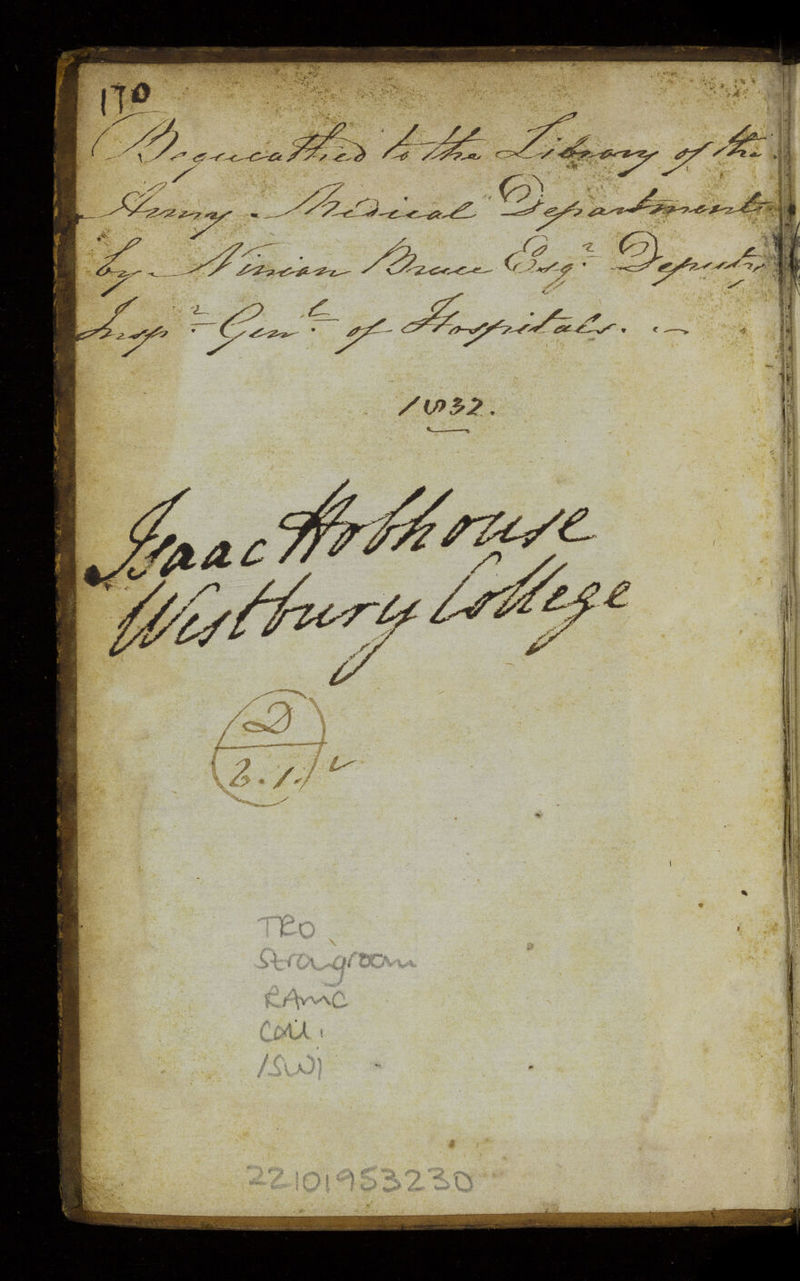 170
Bequeathed to the Library of the
Army Medical Department
by Ninian Bruce Esqr. Deputy
Inspr. Genl. of Hospitals.
1832.
Isaac Hobhouse
Westbury College
D
2.1.
TRO
Strongroom
RAMC
Coll.
22101953230